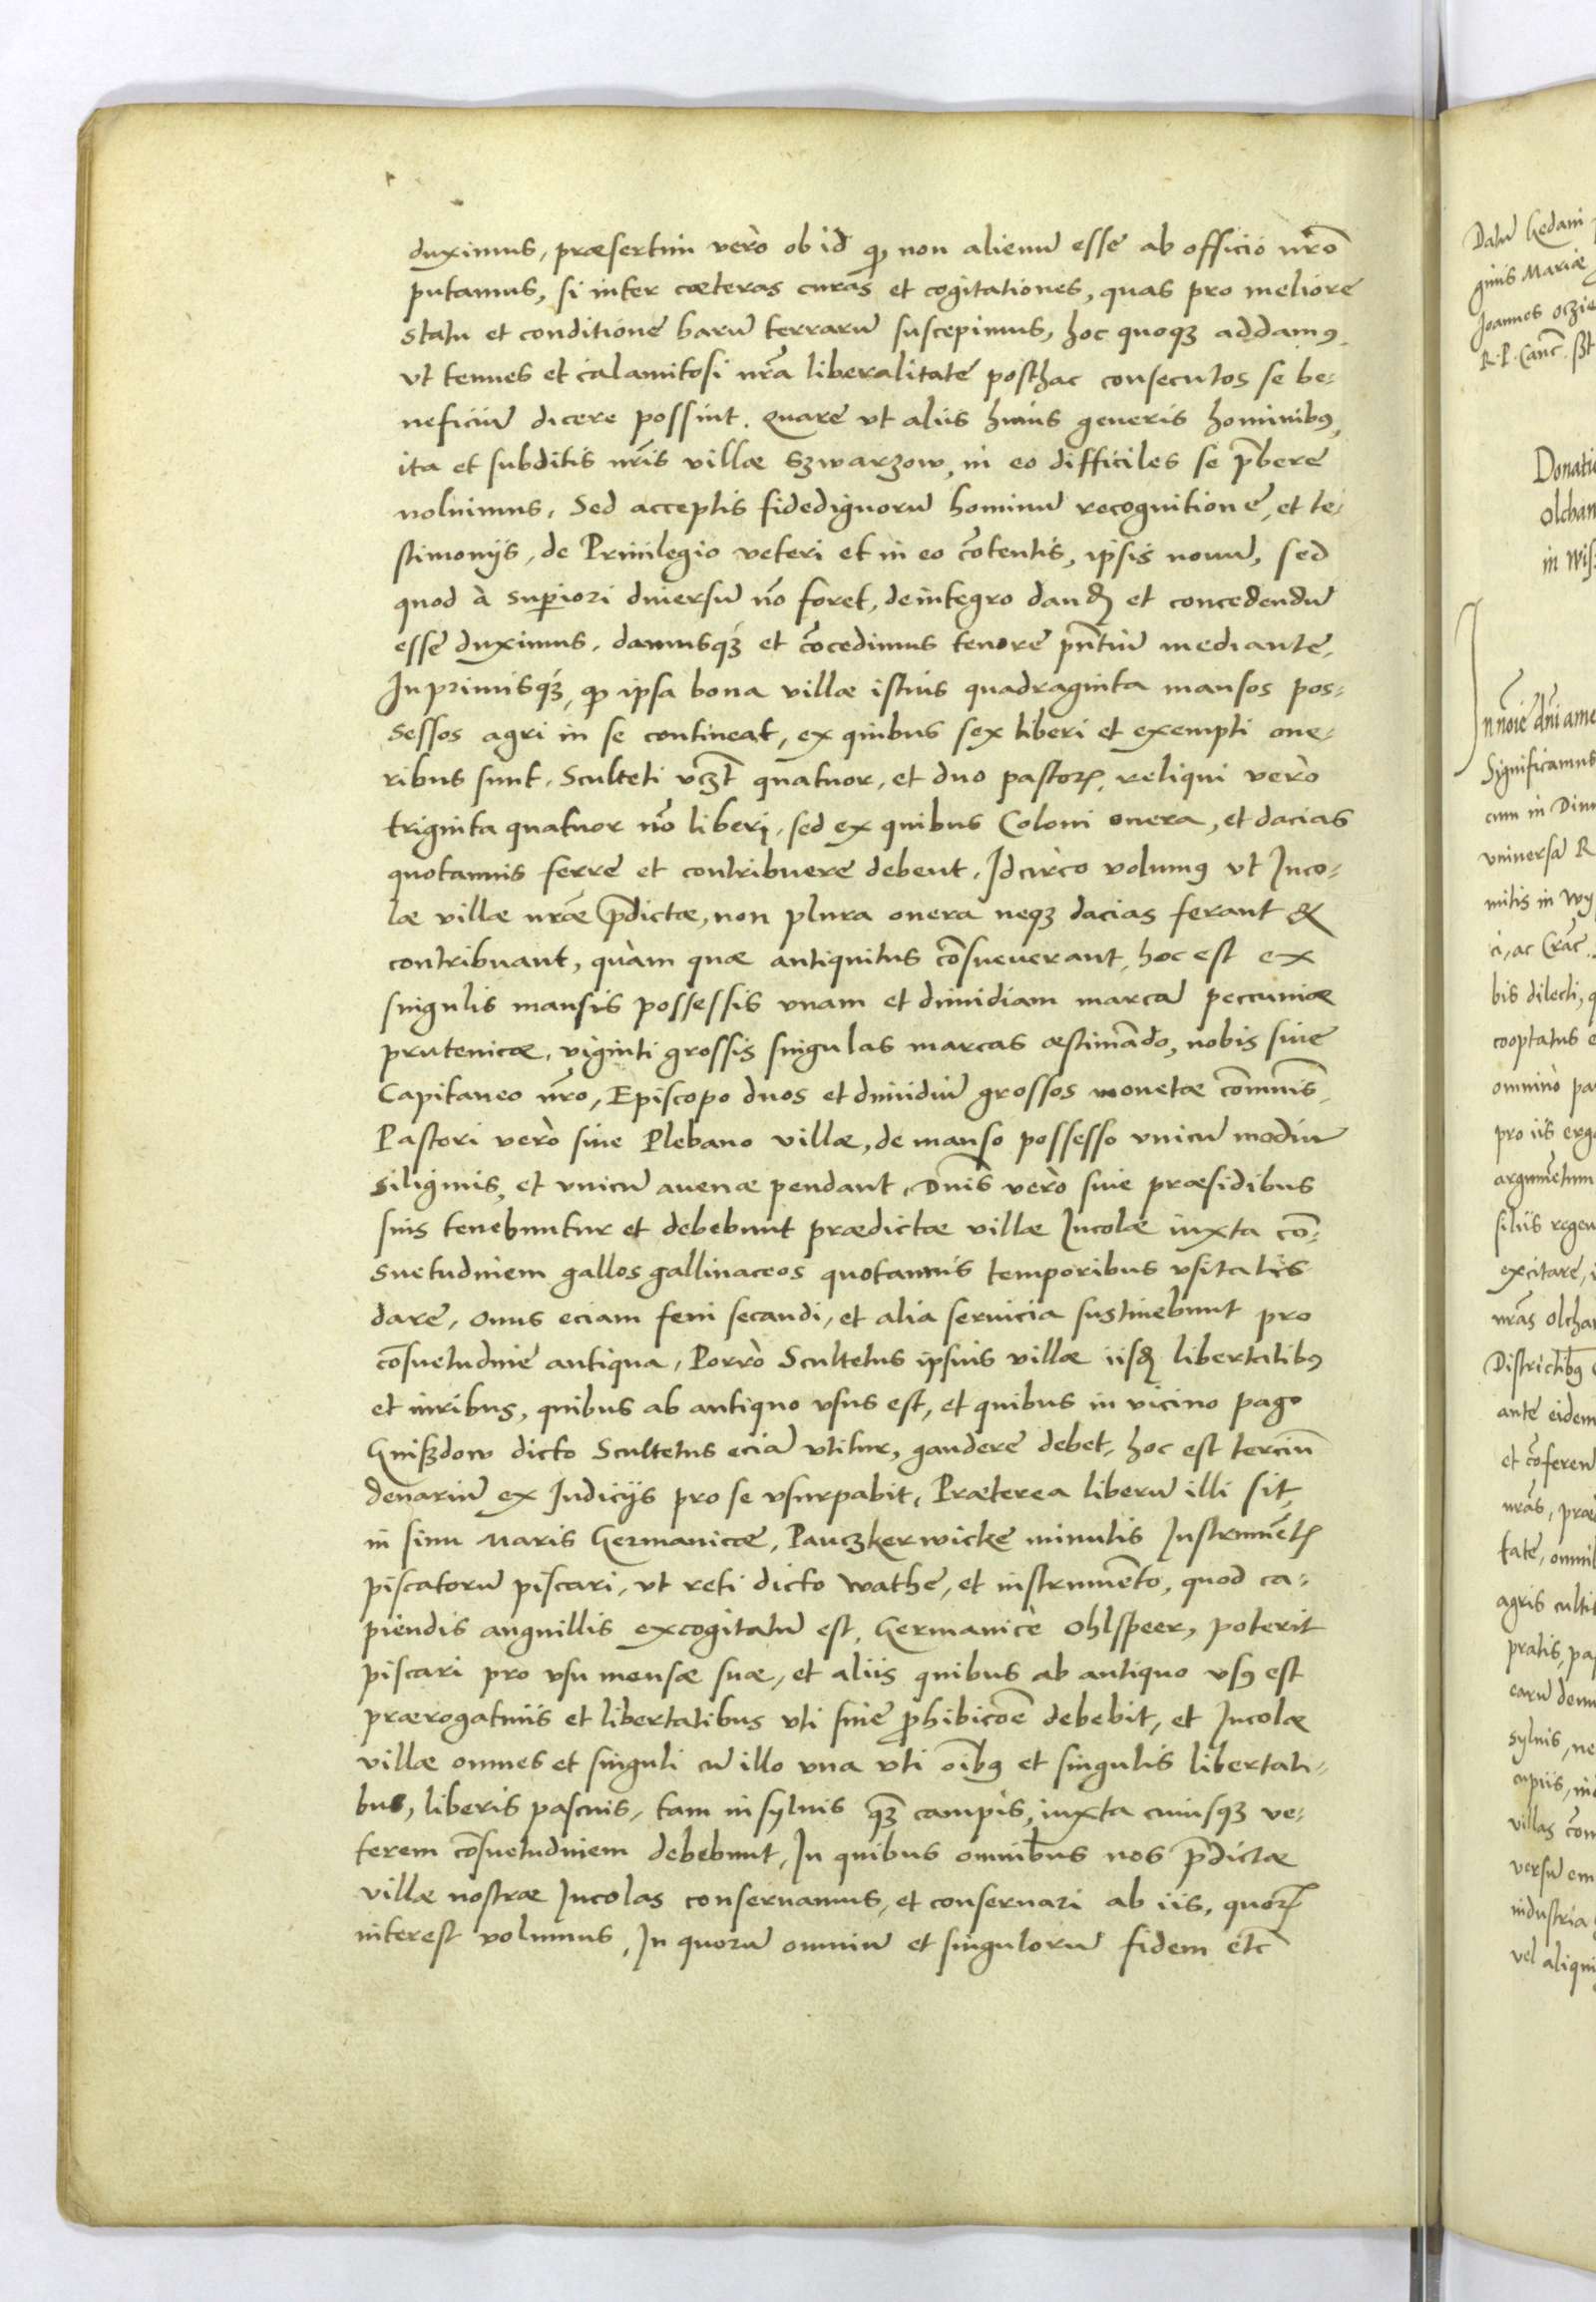 duximus, præsertim verò ob id qđ, non alienū esse ab officio nr̄o
putamus, si inter cæteras curas et cogitationes, quas pro meliore
statu et conditione harū terrarū suscepimus, hoc quoqꝫ addamꝰ,
vt tenues et calamitosi nr̄a liberalitate posthac consecutos se be-
neficiū dicere possint. Quare vt aliis huius generis hominibꝰ,
ita et subditis nr̄is villæ Szwarzow, in eo difficiles se p̄bere
noluimus, Sed acceptis fidedignorū hominū recognitione, et te-
stimonijs, de Priuilegio veteri et in eo cōtentis, ipsis nouū, sed
quod à superiori diuersū nō foret, deintegro dandū et concedendū
esse duximus, damusqꝫ et cōcedimus tenore pn̄tiū mediante,
Inprimisqꝫ, qđ ipsa bona villæ istius quadraginta mansos pos-
sessos agri in se contineat, ex quibus sex liberi et exempti one-
ribus sunt, Sculteti vczt quatuor, et duo pastoris, reliqui verò
triginta quatuor nō liberi, sed ex quibus Coloni onera, et dacias
quotannis ferre et contribuere debent, Idcirco volumꝰ vt Inco-
læ villæ nr̄æ p̄dictæ, non plura onera neqꝫ dacias ferant &
contribuant, quàm quæ antiquitus cōsueuerant, hoc est ex
singulis mansis possessis vnam et dimidiam marcā peccuniæ
prutenicæ, viginti grossis singulas marcas æstimādo, nobis siue
Capitaneo nr̄o, Episcopo duos et dimidiū grossos monetæ cōmunis,
Pastori verò siue Plebano villæ, de manso possesso vnicū modiū
siliginis, et vnicū auenæ pendant, Dn̄is verò siue præsidibus
suis tenebuntur et debebunt prædictæ villæ Incolæ iuxta cō-
suetudinem gallos gallinaceos quotannis temporibus vsitatis
dare, onus eciam feni secandi, et alia seruicia sustinebunt pro
cōsuetudine antiqua, Porrò Scultetus ipsius villæ iisđ libertatibꝰ
et iuribus, quibus ab antiquo vsus est, et quibus in vicino pago
Gnißdow dicto Scultetus eciā vtitur, gaudere debet, hoc est terciū
denariū ex Iudicijs pro se vsurpabit, Præterea liberū illi sit,
in sinu Maris Germanicæ, Pauczkerwicke minutis Instrumētis
piscatorū piscari, vt reti dicto wathe, et instrumēto, quod ca-
piendis anguillis excogitatū est, Germanicè Ohlspeer, poterit
piscari pro vsu mensæ suæ, et aliis quibus ab antiquo vsꝰ est
prærogatiuis et libertatibus vti sine ꝓhibicōe debebit, et Incolæ
villæ omnes et singuli cū illo vna vti oībꝰ et singulis libertati-
bus, liberis pascuis, tam in syluis qꝫ campis, iuxta cuiusqꝫ ve-
terem cōsuetudinem debebunt, In quibus omnibus nos p̄dictæ
villæ nostræ Incolas conseruamus, et conseruari ab iis, quorum
interest volumus, In quorū omniū et singulorū fidem etc̄
Datū Gedani
ginis Mariæ
Joannes oczie
R. P. Canc. sst
Donatio
Olchan
in Wis
In nōie dn̄i ame
Significamus
cum in Dim
vniuersā R
mitis in Wy
ci, ac Crac.
bis dilecti, q
cooptatus e
omnino pa
pro iis erga
argumētum
filiis regen
excitare,
nr̄as Olcha
Districtibꝰ
ante eidem
et cōferen
nr̄as, præ
tate, omnib
agris cultis
pratis, pa
earū dem
syluis, ne
cupiis, in
villas cōm
versū em
industria
vel aliqui